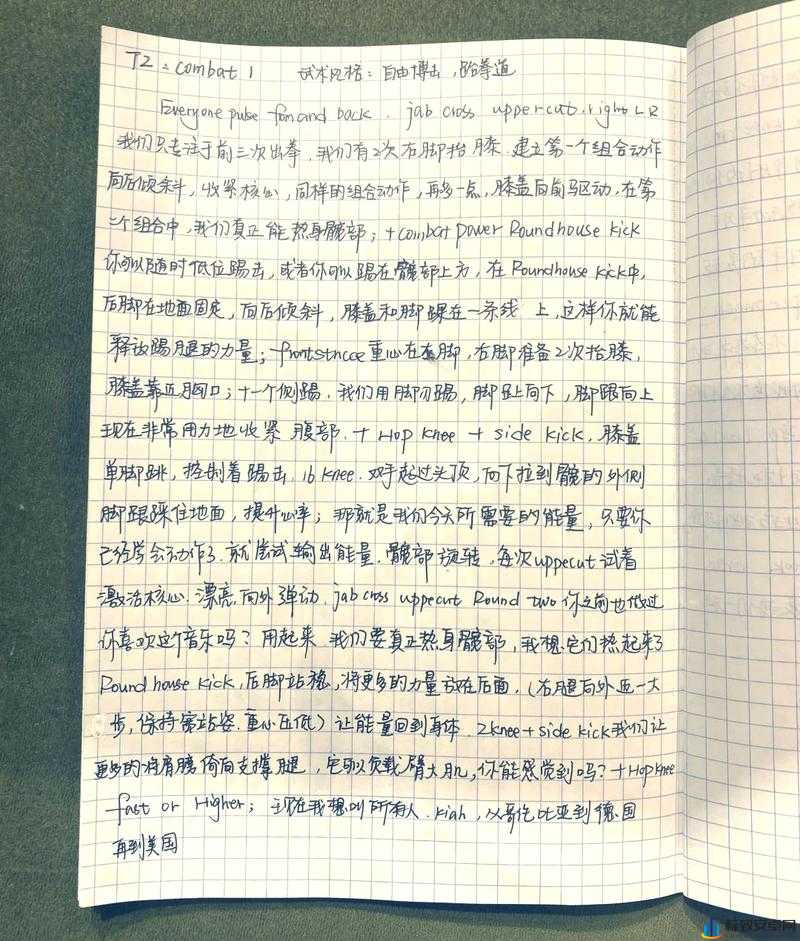 T2: combat 1 武术风格：自由搏击，跆拳道
Everyone pulse and back. jab cross uppercut. right L R
我们只专注于前三次出拳，我们有2次右脚抬膝. 建立第一个组合动作
向后倾斜，收紧核心，同样的组合动作，再多一点，膝盖向前驱动，在第
二个组合中，我们真正能热身髋部；+combat power Roundhouse kick
你可以随时低位踢击，或者你可以踢在髋部上方，在Roundhouse kick中，
后脚在地面固定，向后倾斜，膝盖和脚踝在一条线 上，这样你就能
释放踢腿的力量；重心在左脚，右脚准备2次抬膝，
膝盖靠近胸口；+一个侧踢. 我们用脚刃踢，脚趾向下，脚跟向上
现在非常用力地收紧 腹部. + Hop knee + side kick，膝盖
单脚跳，控制着踢击. 16 knee. 双手起过头顶，向下拉到髋的外侧
脚跟踩住地面，提升心率；那就是我们今天所需要的能量，只要你
已经学会动作了. 就尝试输出能量. 髋部旋转，每次uppecut试着
激活核心. 漂亮. 向外弹动. jab cross uppecut Round two 你之前也做过
你喜欢这个音乐吗？用起来. 我们要真正热身髋部，我想它们热起来了
Round house kick，后脚站稳，将更多的力量放在后面，(右腿向外迈一大
步，保持宽站姿 重心压低）让能量回到身体. 2knee+side kick我们让
更多的将肩膀倚向支撑腿，它可以负载臀大肌，你能感觉到吗？+Hop knee
fast or Higher；现在我想叫所有人. kiah，从哥伦比亚到德国
再到美国